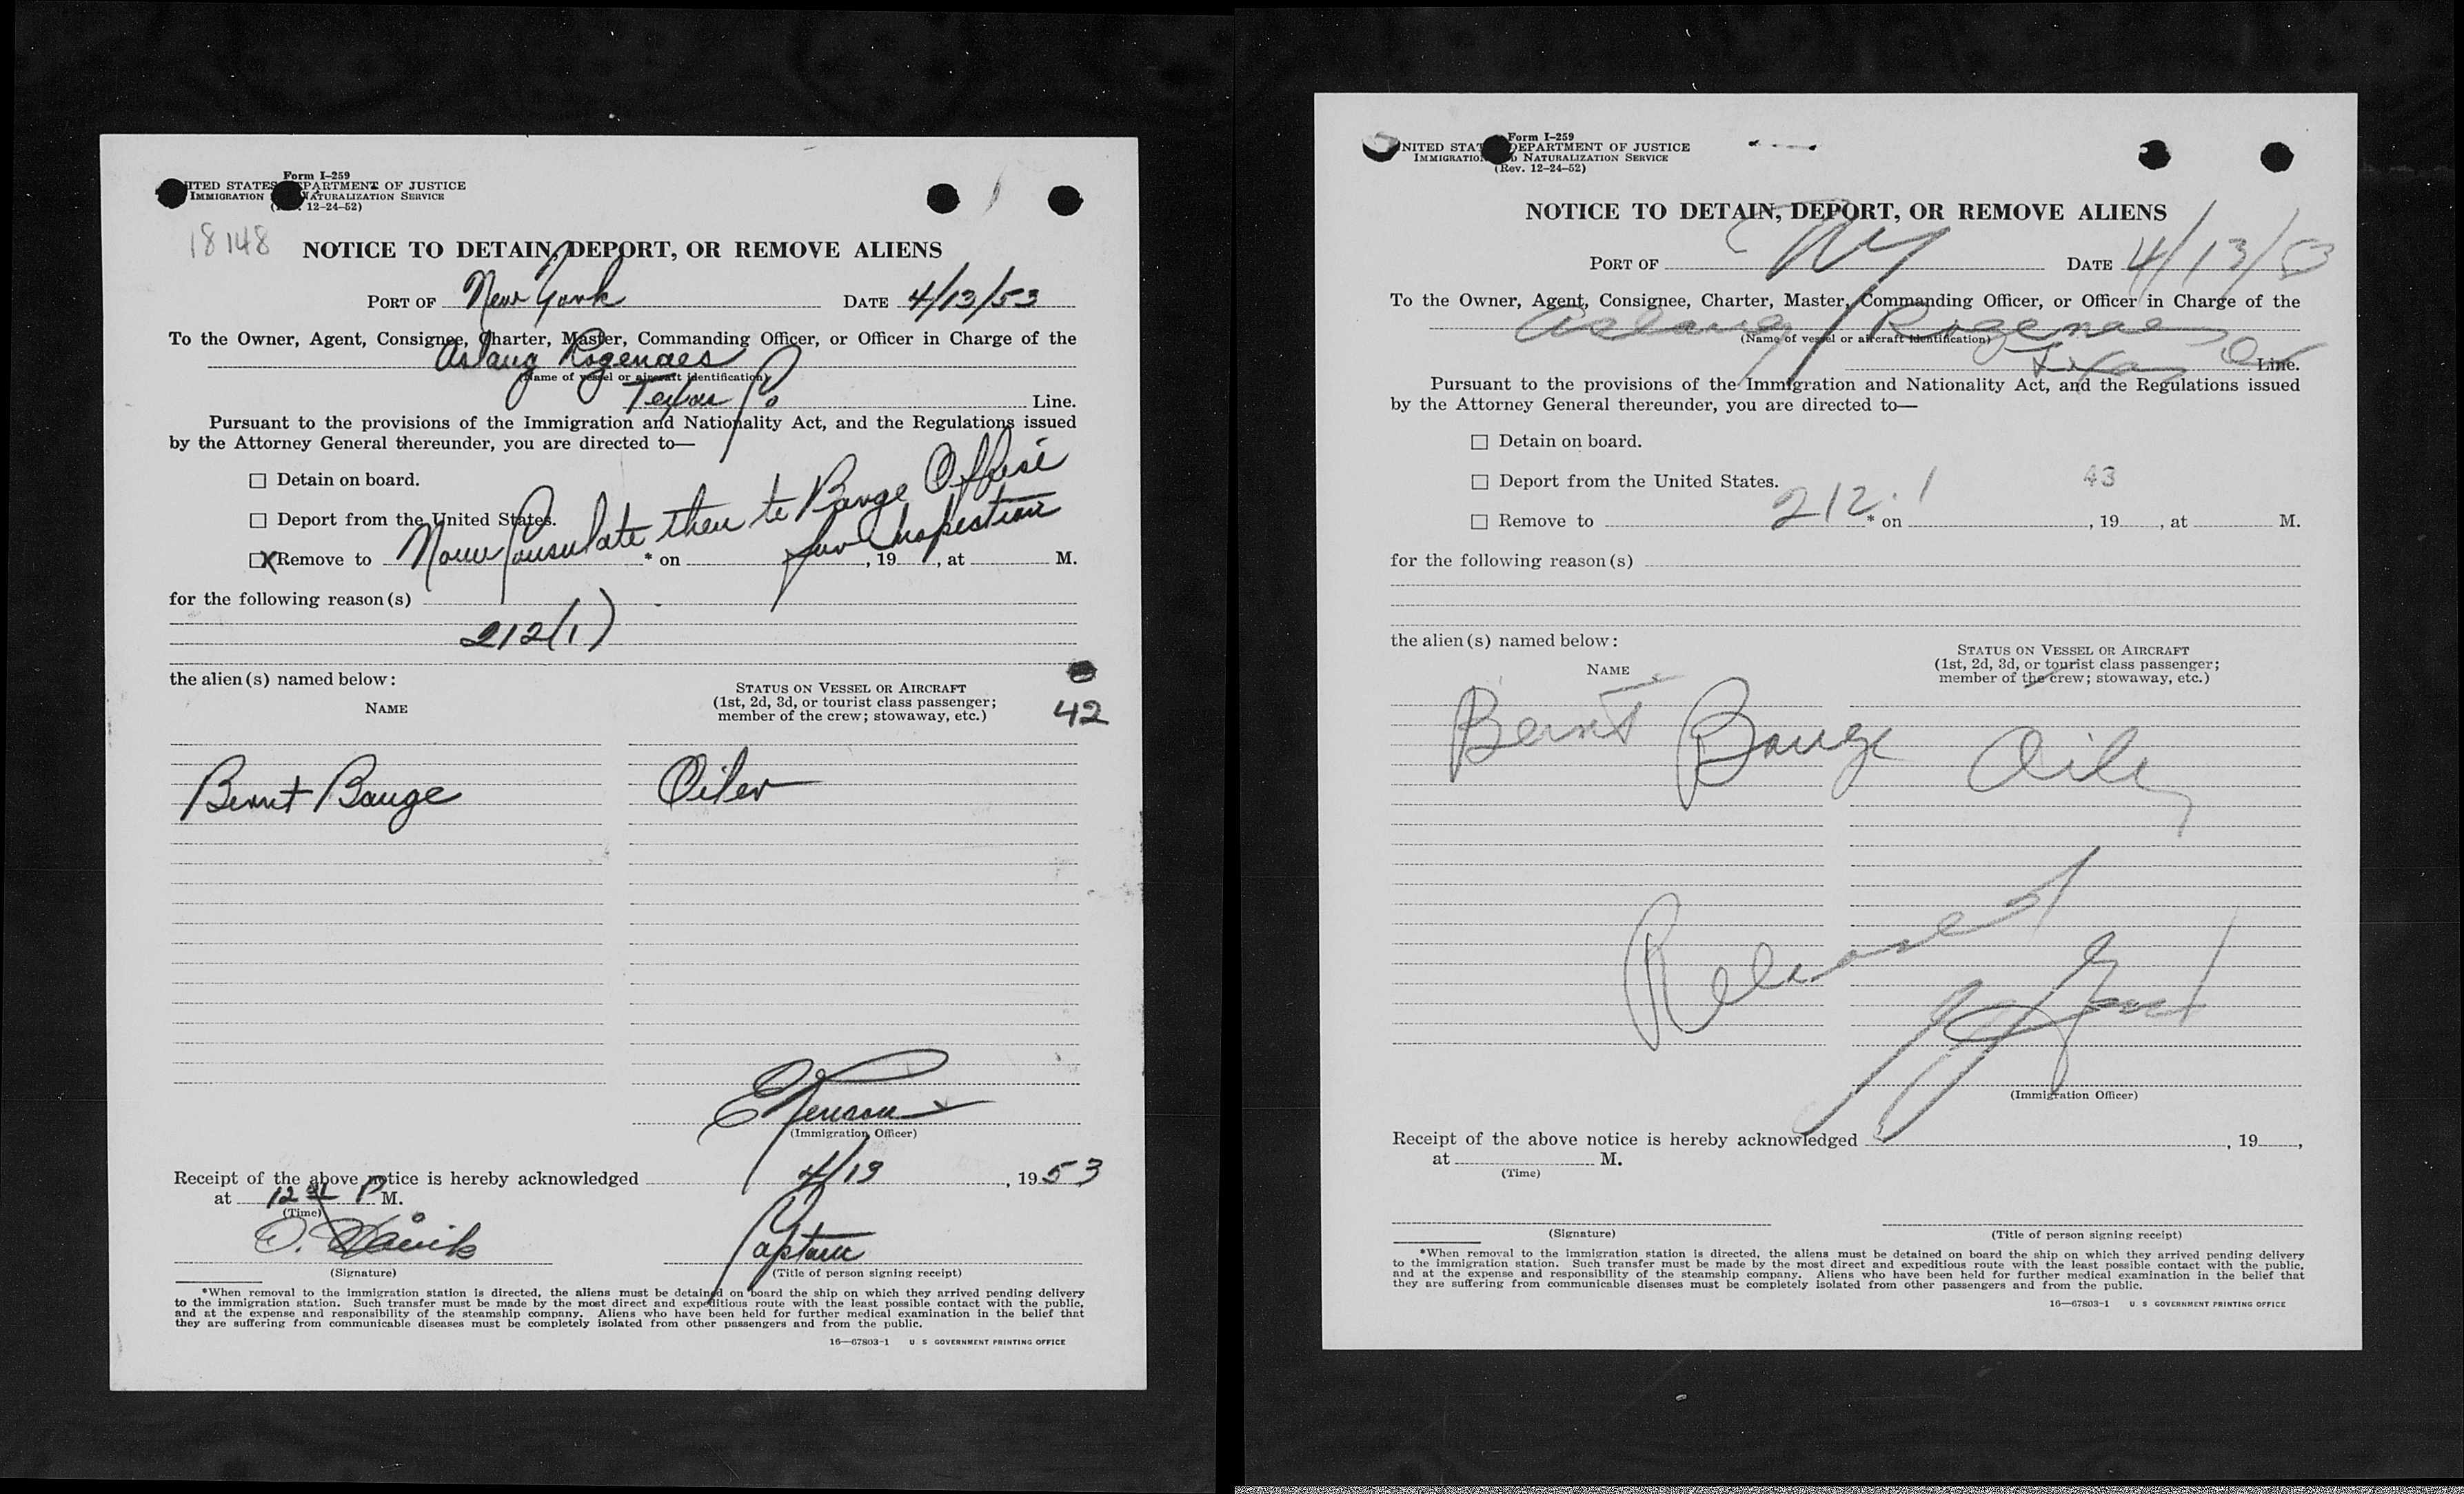 Form I-259
UNITED STATES DEPARTMENT OF JUSTICE
IMMIGRATION NATURALIZATION SERVICE
12-24-52)
18148
NOTICE TO DETAIN, DEPORT, OR REMOVE ALIENS
PORT OF New York DATE 4/13/53
To the Owner, Agent, Consignee, Charter, Master, Commanding Officer, or Officer in Charge of the
Aslaug Rogenaes
(Name of vessel or aircraft identification)
Texas Co Line.
Pursuant to the provisions of the Immigration and Nationality Act, and the Regulations issued
by the Attorney General thereunder, you are directed to—
☐ Detain on board.
☐ Deport from the United States.
☐ X Remove to Norw Consulate then to Barge Office for Inspection * on , 19 , at M.
for the following reason(s)
212(1)
the alien(s) named below:
42
NAME
STATUS ON VESSEL OR AIRCRAFT
(1st, 2d, 3d, or tourist class passenger;
member of the crew; stowaway, etc.)
Bernt Bauge Oiler
(Immigration Officer)
Receipt of the above notice is hereby acknowledged 4/13, 1953
at 12 P M.
(Time)
Captain
(Signature) (Title of person signing receipt)
*When removal to the immigration station is directed, the aliens must be detained on board the ship on which they arrived pending delivery
to the immigration station. Such transfer must be made by the most direct and expeditious route with the least possible contact with the public,
and at the expense and responsibility of the steamship company. Aliens who have been held for further medical examination in the belief that
they are suffering from communicable diseases must be completely isolated from other passengers and from the public.
16—67803-1 U S GOVERNMENT PRINTING OFFICE
Form I-259
UNITED STATES DEPARTMENT OF JUSTICE
IMMIGRATION AND NATURALIZATION SERVICE
(Rev. 12-24-52)
NOTICE TO DETAIN, DEPORT, OR REMOVE ALIENS
PORT OF NY DATE 4/13/53
To the Owner, Agent, Consignee, Charter, Master, Commanding Officer, or Officer in Charge of the
Aslaug Rogenaes
(Name of vessel or aircraft identification)
Texas Co Line.
Pursuant to the provisions of the Immigration and Nationality Act, and the Regulations issued
by the Attorney General thereunder, you are directed to—
☐ Detain on board.
☐ Deport from the United States. 43
☐ Remove to 212.1 * on , 19 , at M.
for the following reason(s)
the alien(s) named below:
NAME
STATUS ON VESSEL OR AIRCRAFT
(1st, 2d, 3d, or tourist class passenger;
member of the crew; stowaway, etc.)
Bernt Bauge Oiler
Released
(Immigration Officer)
Receipt of the above notice is hereby acknowledged , 19 ,
at M.
(Time)
(Signature) (Title of person signing receipt)
*When removal to the immigration station is directed, the aliens must be detained on board the ship on which they arrived pending delivery
to the immigration station. Such transfer must be made by the most direct and expeditious route with the least possible contact with the public,
and at the expense and responsibility of the steamship company. Aliens who have been held for further medical examination in the belief that
they are suffering from communicable diseases must be completely isolated from other passengers and from the public.
16—67803-1 U S GOVERNMENT PRINTING OFFICE